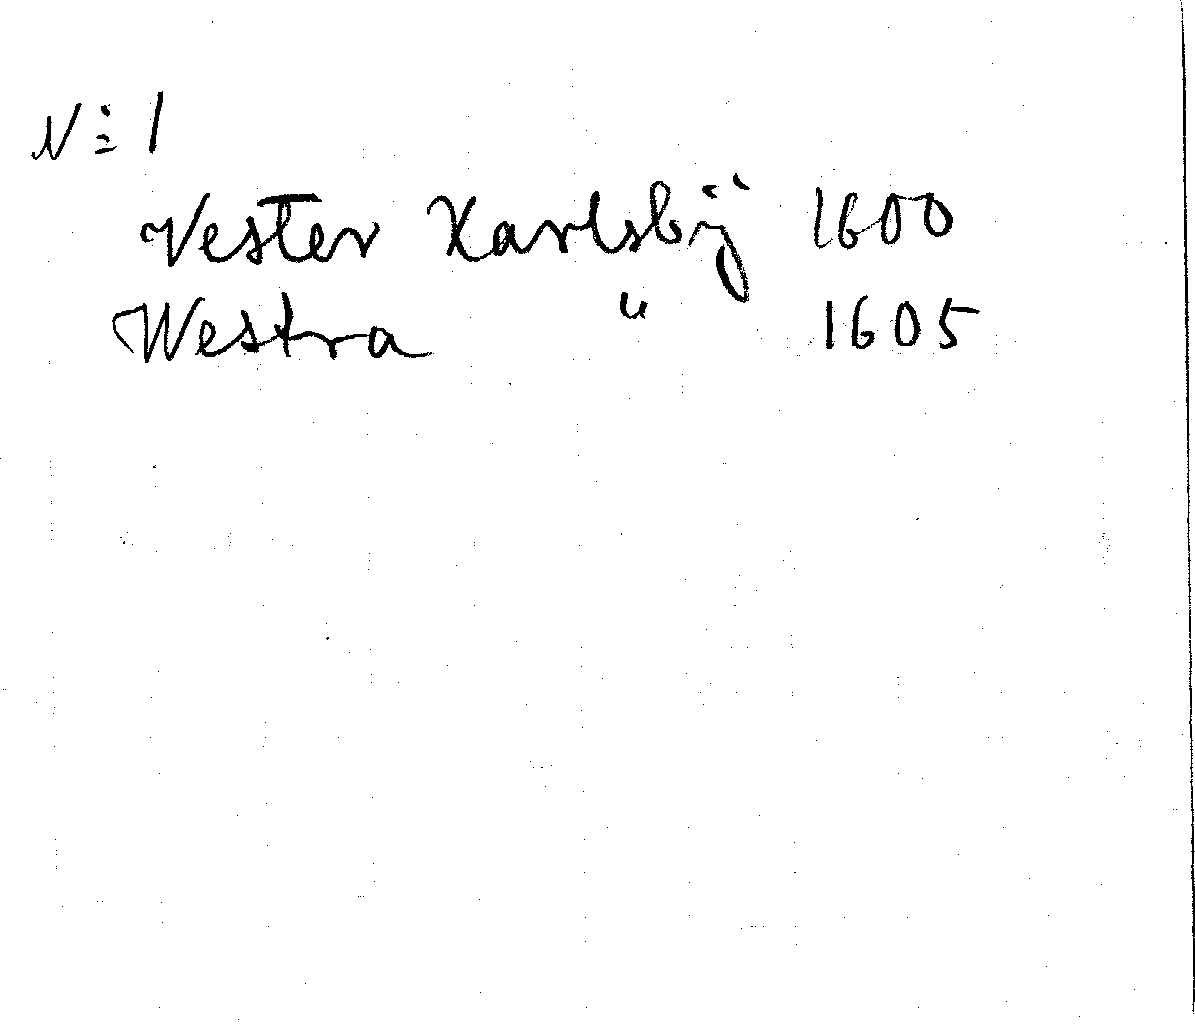 N:o 1
Vester Karlsbÿ 1600
Westra " 1605